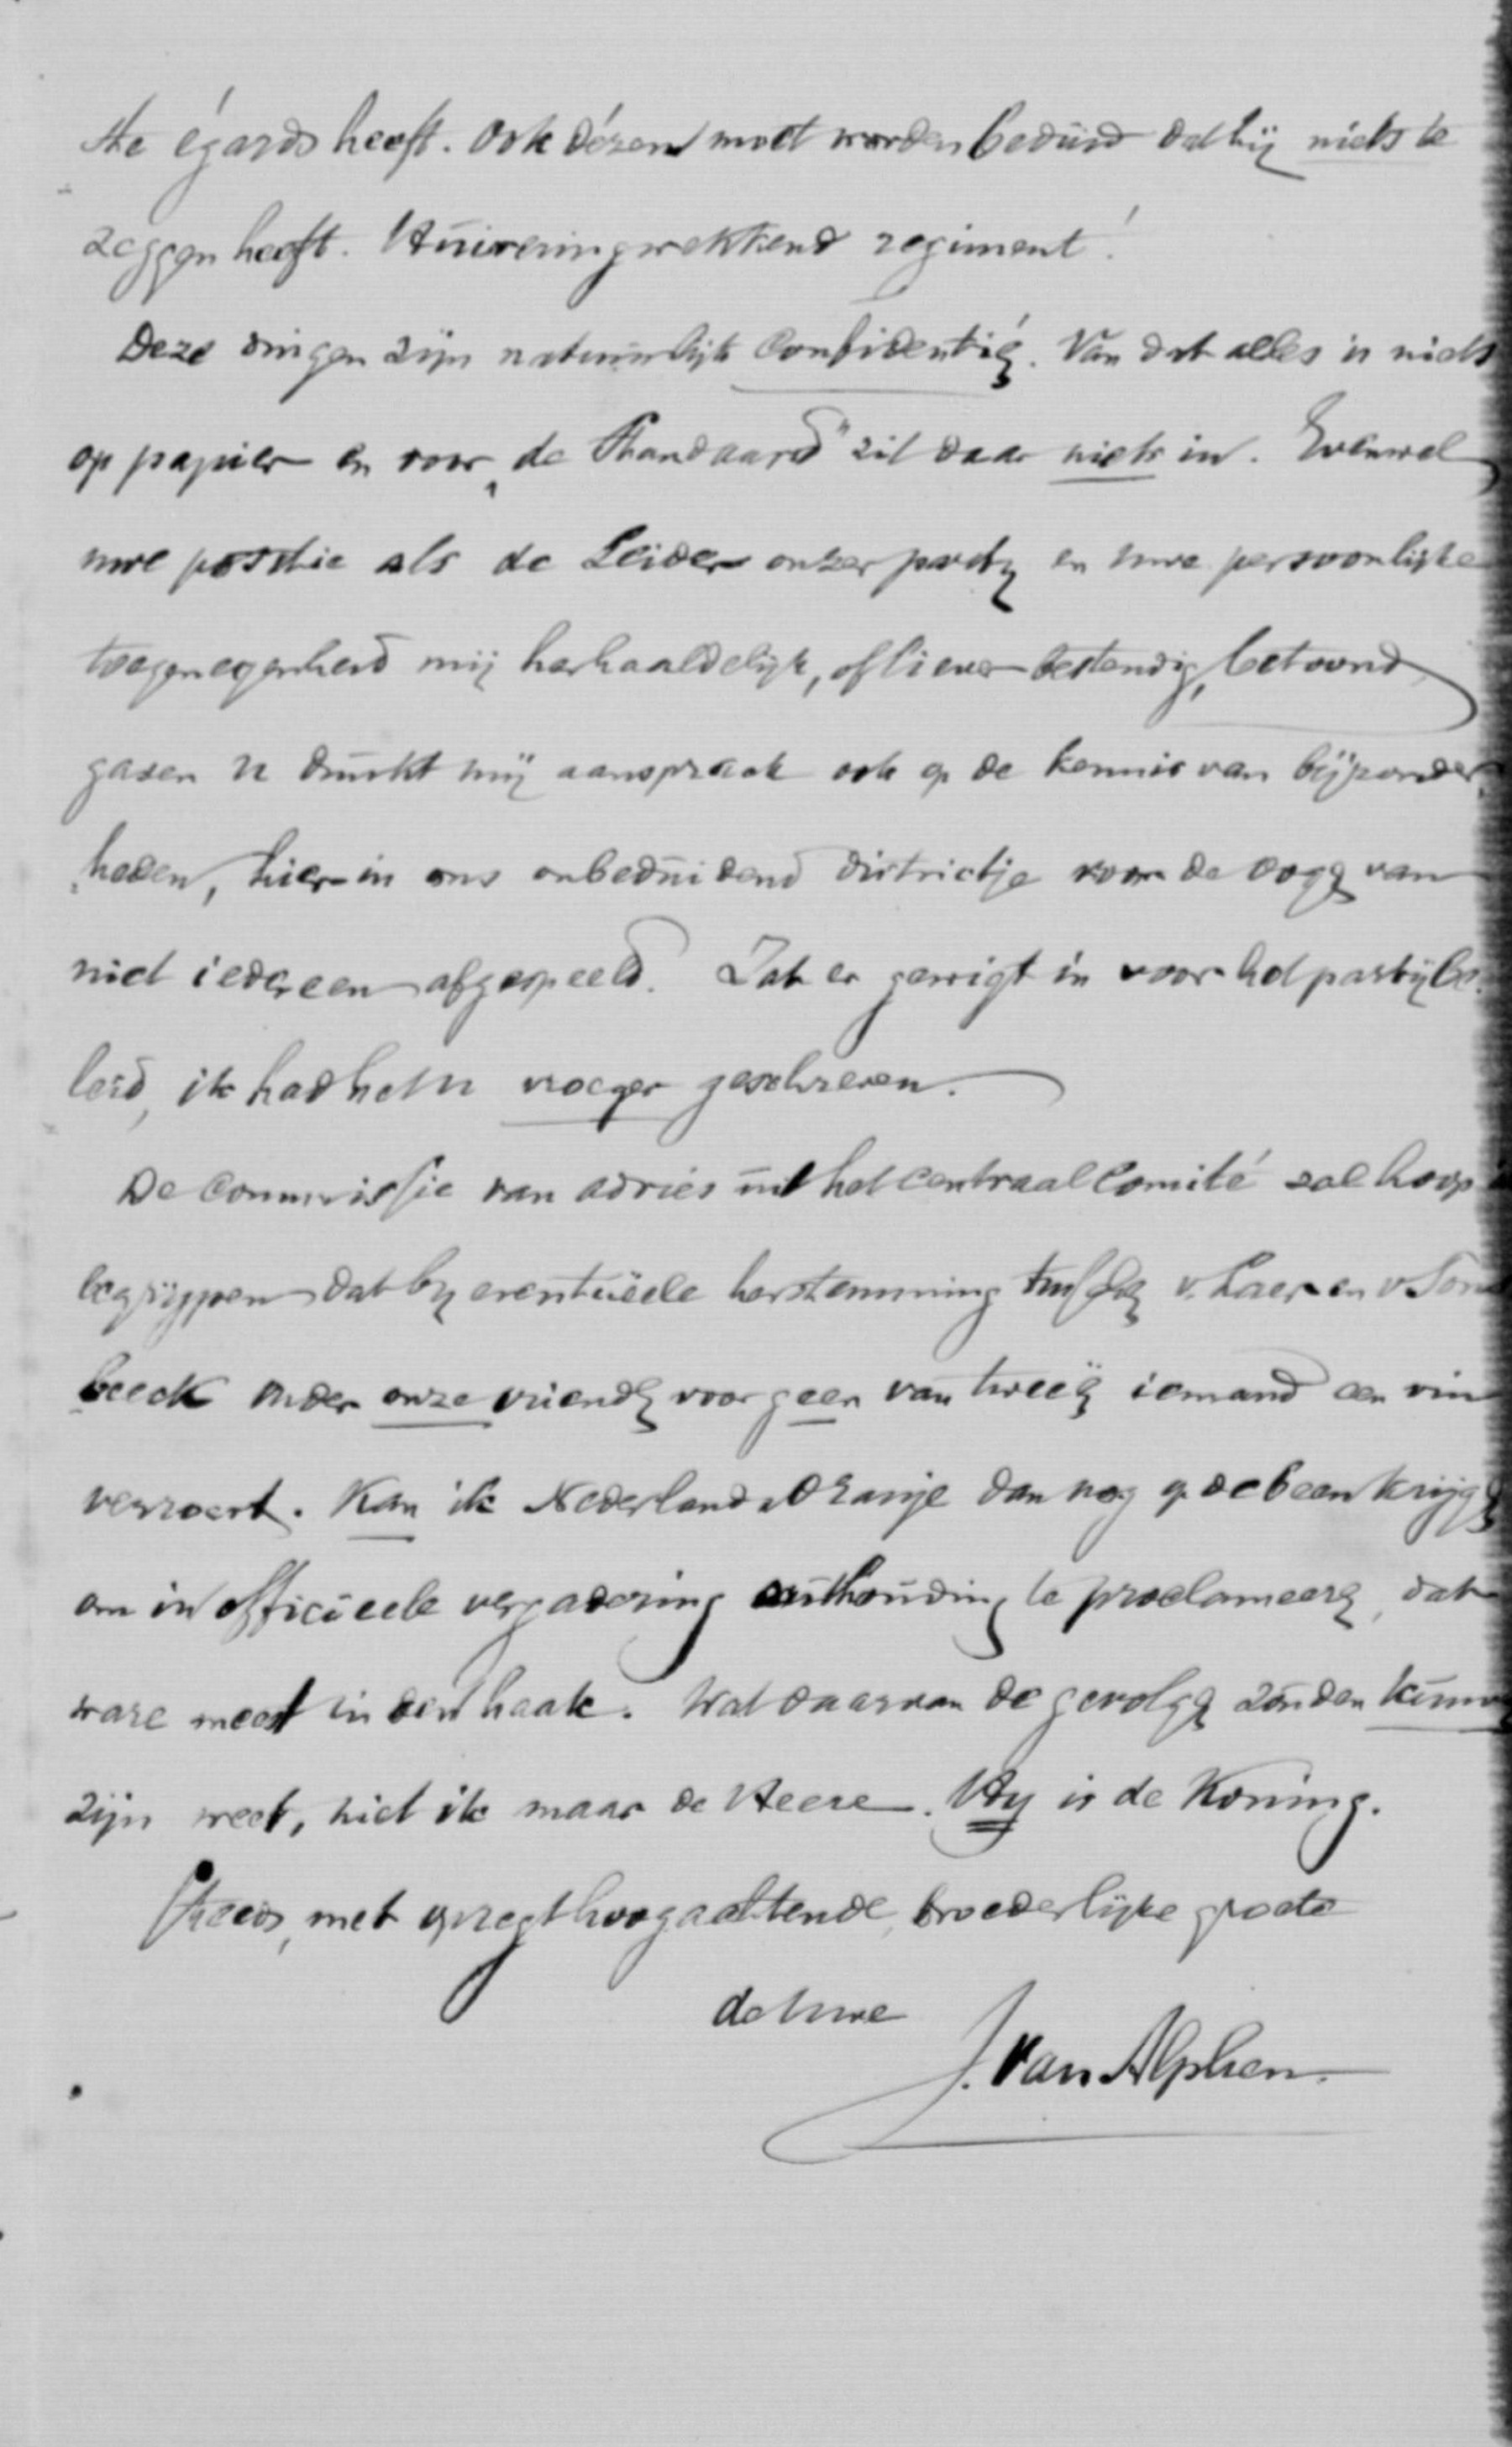 ste égards heeft. Ook dézen moet worden beduid dat hij niets te
zeggen heeft. Huiveringwekkend regiment!
Deze dingen zijn natuurlijk confidentiël. Van dat alles is niets
op papier en voor „de Standaard" zit daar niets in. Evenwel
uwe positie als de Leider onzer partij en uwe persoonlijke
toegenegenheid mij herhaaldelijk, of liever bestendig, betoond,
gaven U dunkt mij aanspraak ook op de kennis van bijzonder-
heden, hier in ons onbeduidend districtje voor de oogen van
niet iedereen afgespeeld. Zat er gewigt in voor het partijbe-
leid, ik had het U vroeger geschreven.
De Commissie van advies uit het Centraal Comité zal hoop ik
begrijpen dat by eventuëele herstemming tusschen v. Laer en v. Son
beeck onder onze vrienden voor geen van tweeën iemand een vin
verroert. Kan ik Nederland en Oranje dan nog op de been krijgen
om in officiëele vergadering onthouding te proclameeren, dat
ware meest in den haak. Wat daarvan de gevolgen zouden kunnen
zijn weet, niet ik maar de Heere. Hy is de Koning.
Steeds, met opregt hoogachtende, broederlijke groete
de Uwe
J. van Alphen.